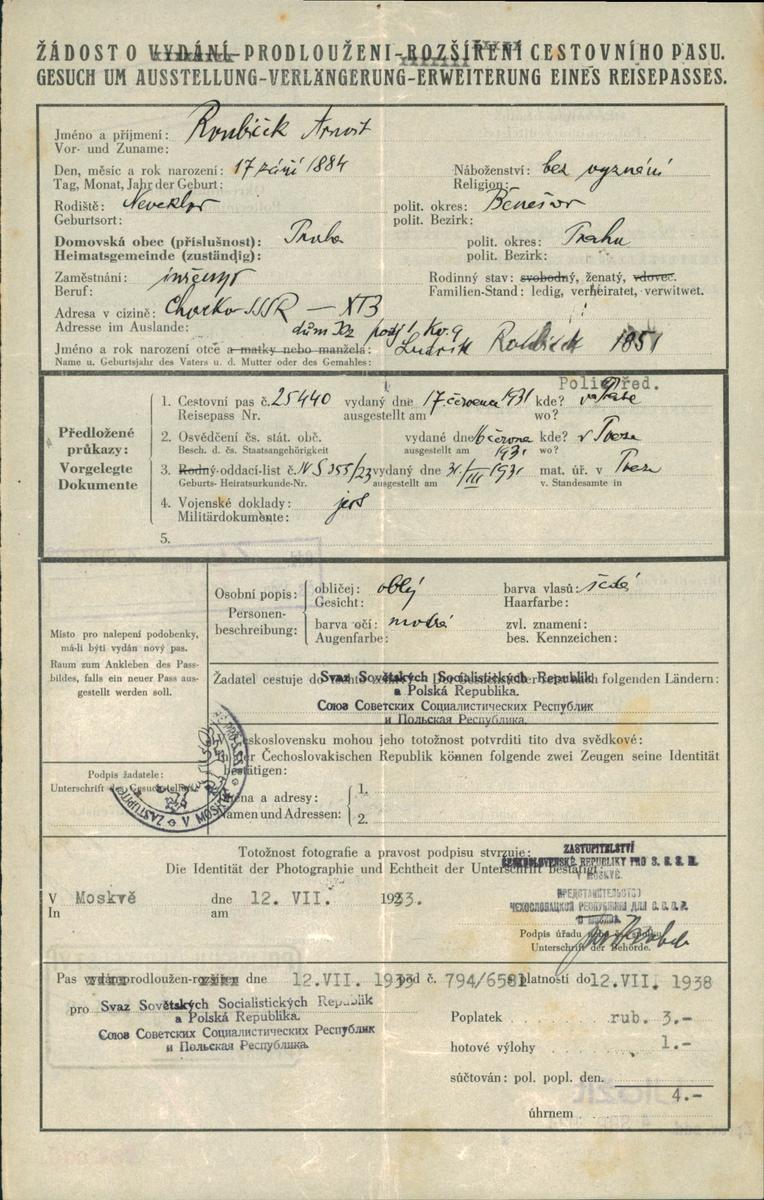 ŽÁDOST O VYDÁNÍ-PRODLOUŽENI-ROZŠÍŘENÍ CESTOVNÍHO PASU.
GESUCH UM AUSSTELLUNG-VERLÄNGERUNG-ERWEITERUNG EINES REISEPASSES.
Jméno a příjmení: Roubíček Arnošt
Vor- und Zuname:
Den, měsíc a rok narození: 17 září 1884 Náboženství: bez vyznání
Tag, Monat, Jahr der Geburt: Religion:
Rodiště: Neveklov polit. okres: Benešov
Geburtsort: polit. Bezirk:
Domovská obec (příslušnost): Praha polit. okres: Praha
Heimatsgemeinde (zuständig): polit. Bezirk:
Zaměstnání: inženýr Rodinný stav: svobodný, ženatý, vdovec.
Beruf: Familien-Stand: ledig, verheiratet, verwitwet.
Adresa v cizině: SSR — XTЗ
Adresse im Auslande: dům
Jméno a rok narození otce a matky nebo manžela: Ludvík Roubíček 1851
Name u. Geburtsjahr des Vaters u. d. Mutter oder des Gemahles:
Předložené průkazy:
Vorgelegte Dokumente
Polic. řed.
1. Cestovní pas č. 25440 vydaný dne 17 června 1931 kde? v Praze
Reisepass Nr. ausgestellt am wo?
2. Osvědčení čs. stát. obč. vydané dne 16 června 1931 kde? v Praze
Besch. d. čs. Staatsangehörigkeit ausgestellt am wo?
3. Rodný-oddací-list č. N S 355/23 vydaný dne 31/III 1931 mat. úř. v Praze
Geburts- Heiratsurkunde-Nr. ausgestellt am v. Standesamte in
4. Vojenské doklady:
Militärdokumente:
5.
Místo pro nalepení podobenky,
má-li býti vydán nový pas.
Raum zum Ankleben des Pass-
bildes, falls ein neuer Pass aus-
gestellt werden soll.
Podpis žadatele:
Unterschrift des Gesuchstellers:
Osobní popis: obličej: oblý barva vlasů: šedá
Gesicht: Haarfarbe:
Personen-
beschreibung: barva očí: modrá zvl. znamení:
Augenfarbe: bes. Kennzeichen:
Žadatel cestuje do těchto nach folgenden Ländern:
Svaz Sovětských Socialistických Republik
a Polská Republika.
Союз Советских Социалистических Республик
и Польская Республика.
eskoslovensku mohou jeho totožnost potvrditi tito dva svědkové:
der Čechoslovakischen Republik können folgende zwei Zeugen seine Identität
bestätigen:
Jména a adresy: 1.
Namen und Adressen: 2.
Totožnost fotografie a pravost podpisu stvrzuje:
Die Identität der Photographie und Echtheit der Unterschrift bestätigt:
ZASTUPITELSTVÍ
ČESKOSLOVENSKÉ REPUBLIKY PRO S.S.S.R.
V MOSKVĚ.
ПРЕДСТАВИТЕЛЬСТВО
ЧЕХОСЛОВАЦКОЙ РЕСПУБЛИКИ ДЛЯ С.С.С.Р.
В МОСКВЕ
V Moskvě dne 12. VII. 1933.
In am
Podpis úřadu
Unterschrift der Behörde.
Pas vydán-prodloužen-rozšířen dne 12.VII. 1933 pod č. 794/6581 platností do 12.VII. 1938
pro Svaz Sovětských Socialistických Republik
a Polská Republika.
Союз Советских Социалистических Республик
и Польская Республика.
Poplatek rub. 3.-
hotové výlohy 1.-
súčtován: pol. popl. den.
4.-
úhrnem